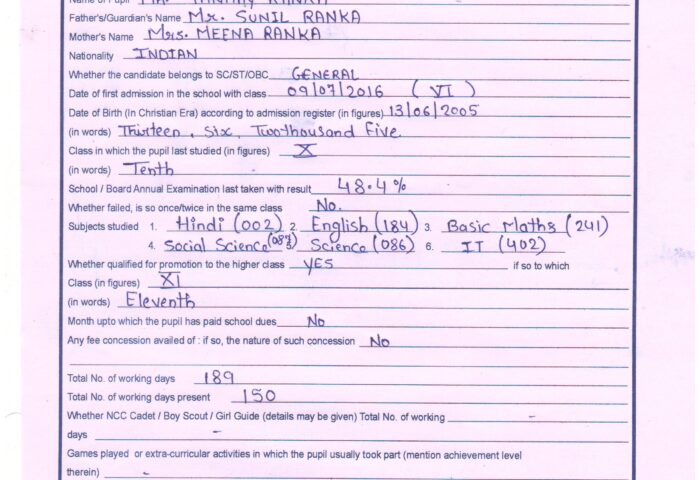 Father's/Guardian's Name Mr. SUNIL RANKA
Mother's Name Mrs. MEENA RANKA
Nationality INDIAN
Whether the candidate belongs to SC/ST/OBC GENERAL
Date of first admission in the school with class 09/07/2016 (VI)
Date of Birth (in Christian Era) according to admission register (in figures) 13/06/2005
(in words) Thirteen, Six, Twothousand Five.
Class in which the pupil last studied (in figures) X
(in words) Tenth
School / Board Annual Examination last taken with result 48.4%
Whether failed, is so once/twice in the same class No.
Subjects studied 1. Hindi (002) 2. English (184) 3. Basic Maths (241)
4. Social Science (087) 5. Science (086) 6. IT (402)
Whether qualified for promotion to the higher class YES if so to which
Class (in figures) XI
(in words) Eleventh
Month upto which the pupil has paid school dues No
Any fee concession availed of : if so, the nature of such concession No
Total No. of working days 189
Total No. of working days present 150
Whether NCC Cadet / Boy Scout / Girl Guide (details may be given) Total No. of working -
days -
Games played or extra-curricular activities in which the pupil usually took part (mention achievement level
therein) -